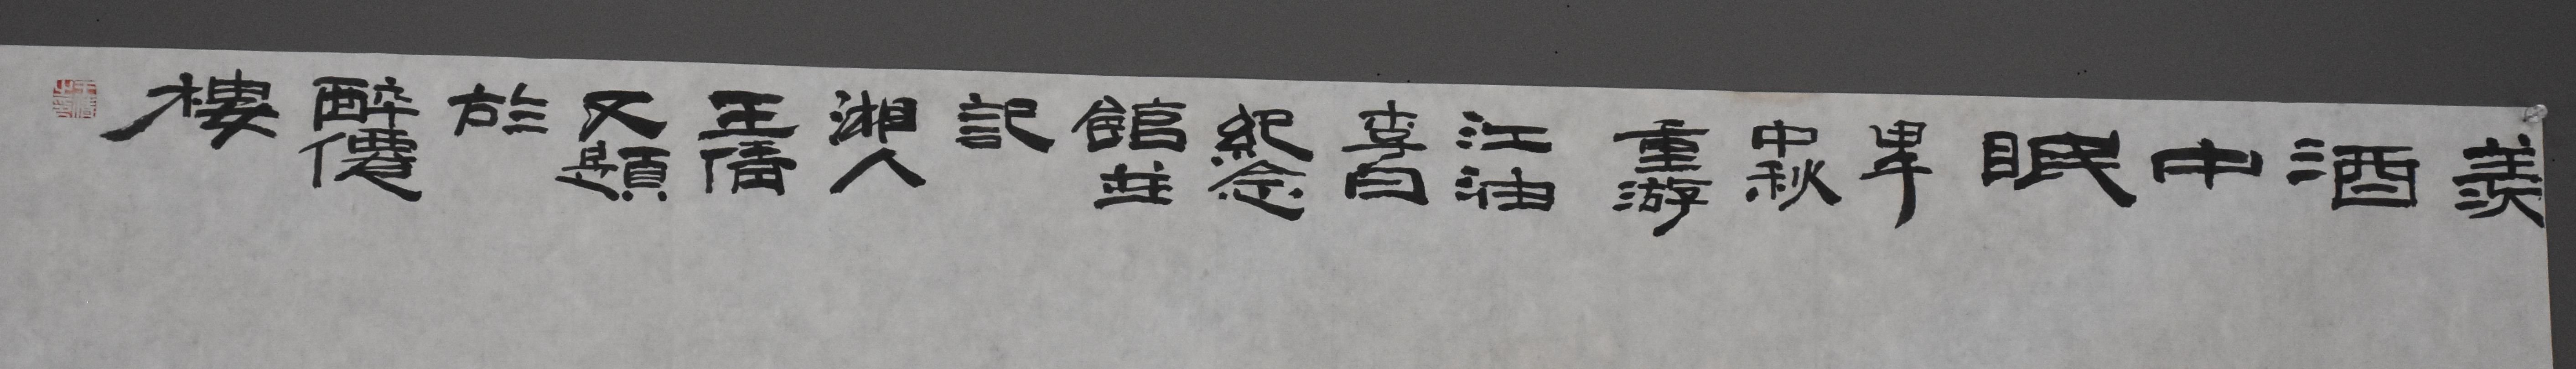 羨
酒
中
眠
甲午
中秋
重游
江油
李白
紀念
館並
記
湘人
王
又題
於
醉僊
樓